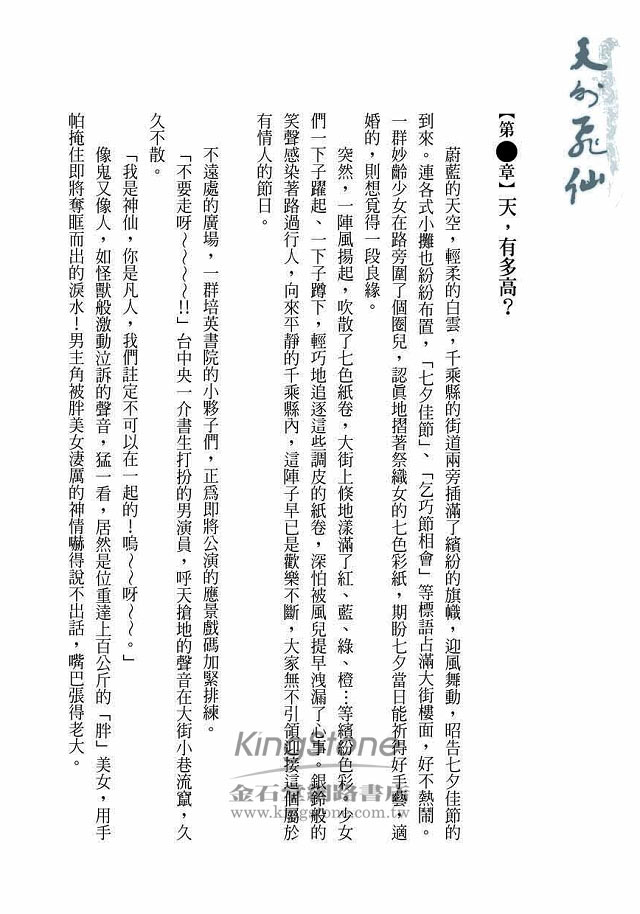 天外飛仙
【第●章】天，有多高？
蔚藍的天空，輕柔的白雲，千乘縣的街道兩旁插滿了繽紛的旗幟，迎風舞動，昭告七夕佳節的
到來。連各式小攤也紛紛布置，「七夕佳節」、「乞巧節相會」等標語占滿大街樓面，好不熱鬧。
一群妙齡少女在路旁圍了個圈兒，認真地摺著祭織女的七色彩紙，期盼七夕當日能祈得好手藝，適
婚的，則想覓得一段良緣。
突然，一陣風揚起，吹散了七色紙卷，大街上倏地漾滿了紅、藍、綠、橙…等繽紛色彩。少女
們一下子躍起、一下子蹲下，輕巧地追逐這些調皮的紙卷，深怕被風兒提早洩漏了心事。銀鈴般的
笑聲感染著路過行人，向來平靜的千乘縣內，這陣子早已是歡樂不斷，大家無不引領迎接這個屬於
有情人的節日。
不遠處的廣場，一群培英書院的小夥子們，正為即將公演的應景戲碼加緊排練。
「不要走呀～～～～!!」台中央一介書生打扮的男演員，呼天搶地的聲音在大街小巷流竄，久
久不散。
「我是神仙，你是凡人，我們註定不可以在一起的！嗚～～呀～～。」
像鬼又像人，如怪獸般激動泣訴的聲音，猛一看，居然是位重達上百公斤的「胖」美女，用手
帕掩住即將奪眶而出的淚水！男主角被胖美女淒厲的神情嚇得說不出話，嘴巴張得老大。
KingStone
金石堂網路書店
www.kingstone.com.tw